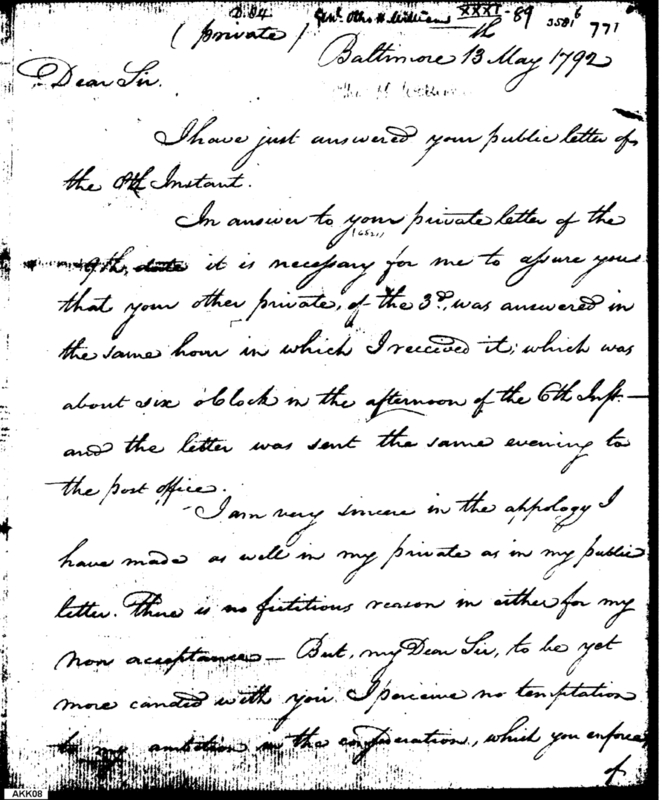 D. 94 Genl. Otho H Williams XXXI-89 3581 6 771
(private)
Baltimore 13th May 1792
Dear Sir.
I have just answered your public letter of
the 8th Instant.
In answer to your private letter of the
9th, it is necessary for me to assure you
that your other private, of the 3d, was answered in
the same hour in which I received it; which was
about six o'Clock in the afternoon of the 6th Inst.—
and the letter was sent the same evening to
the post office.
I am very sincere in the appology I
have made as well in my private as in my public
letter. There is no fictitious reason in either for my
non acceptance — But, my Dear Sir, to be yet
more candid with you I perceive no temptation
to my ambition in the consideration, which you enforce
of
AKK08